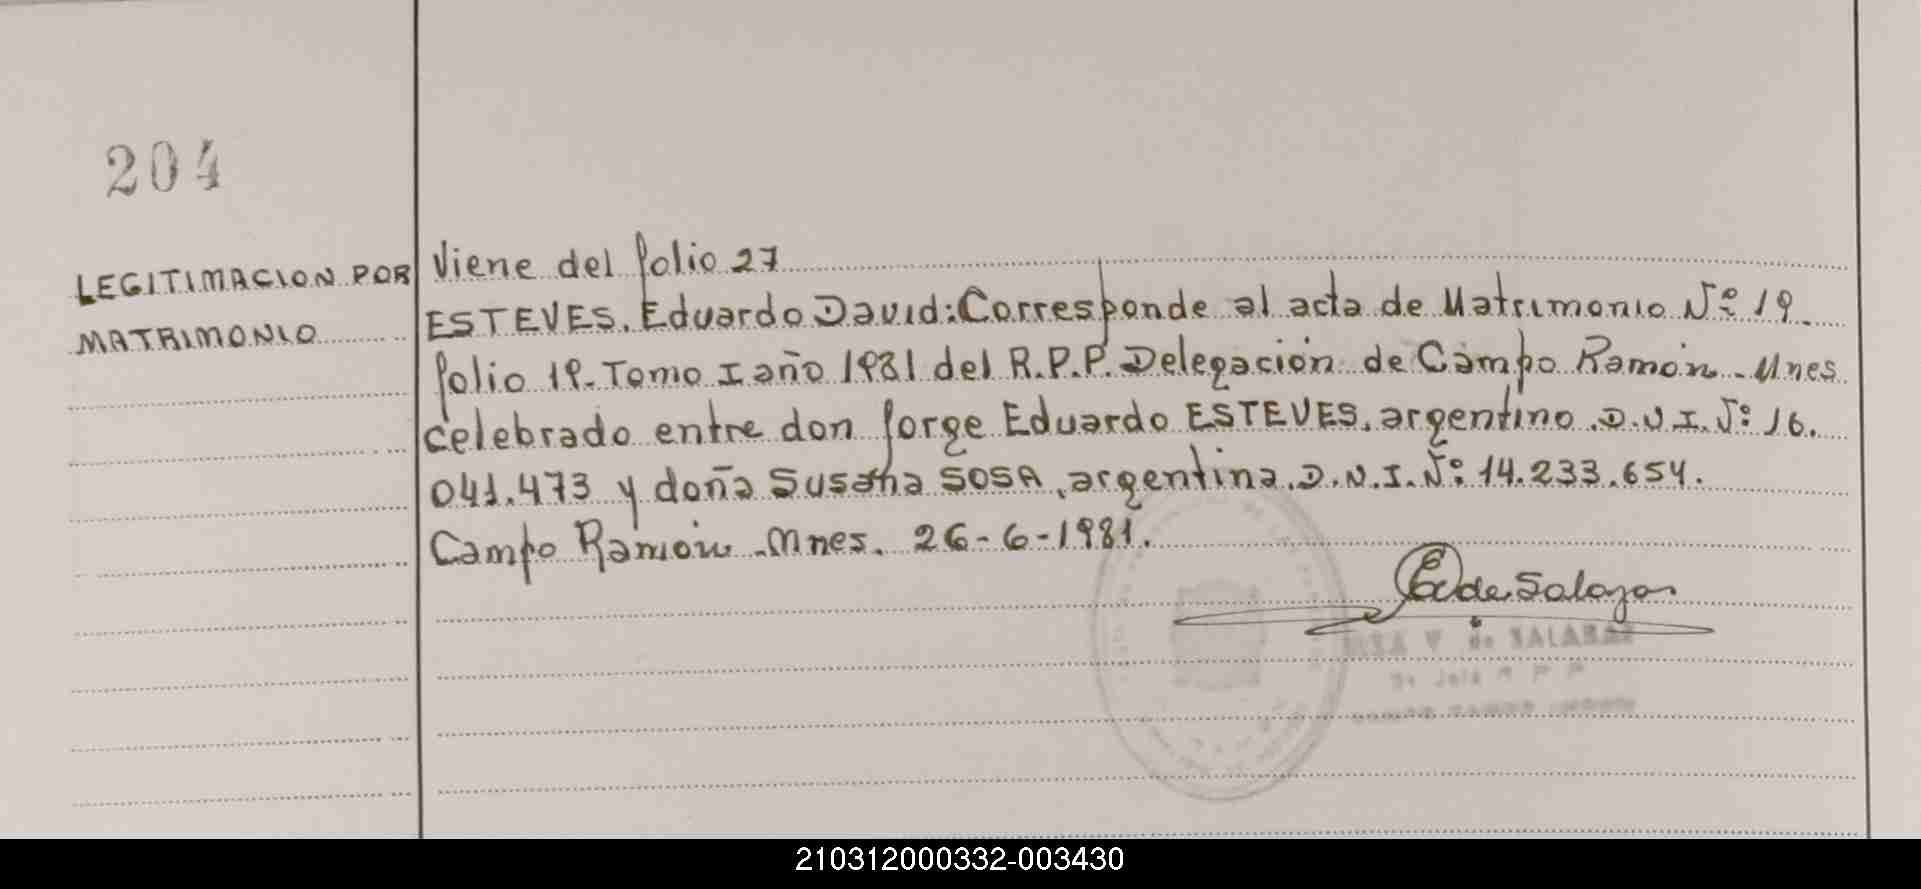 204
LEGITIMACION POR
MATRIMONIO
Viene del folio 27
ESTEVES, Eduardo David: Corresponde al acta de Matrimonio Nº 19.
folio 19. Tomo I año 1981 del R.P.P. Delegación de Campo Ramón - Mnes
celebrado entre don Jorge Eduardo ESTEVES, argentino D.N.I. Nº 16.
041.473 y doña Susana SOSA, argentina, D.N.I. Nº 14.233.654.
Campo Ramón - Mnes. 26-6-1981.
de Salazar
V de SALAZAR
210312000332-003430